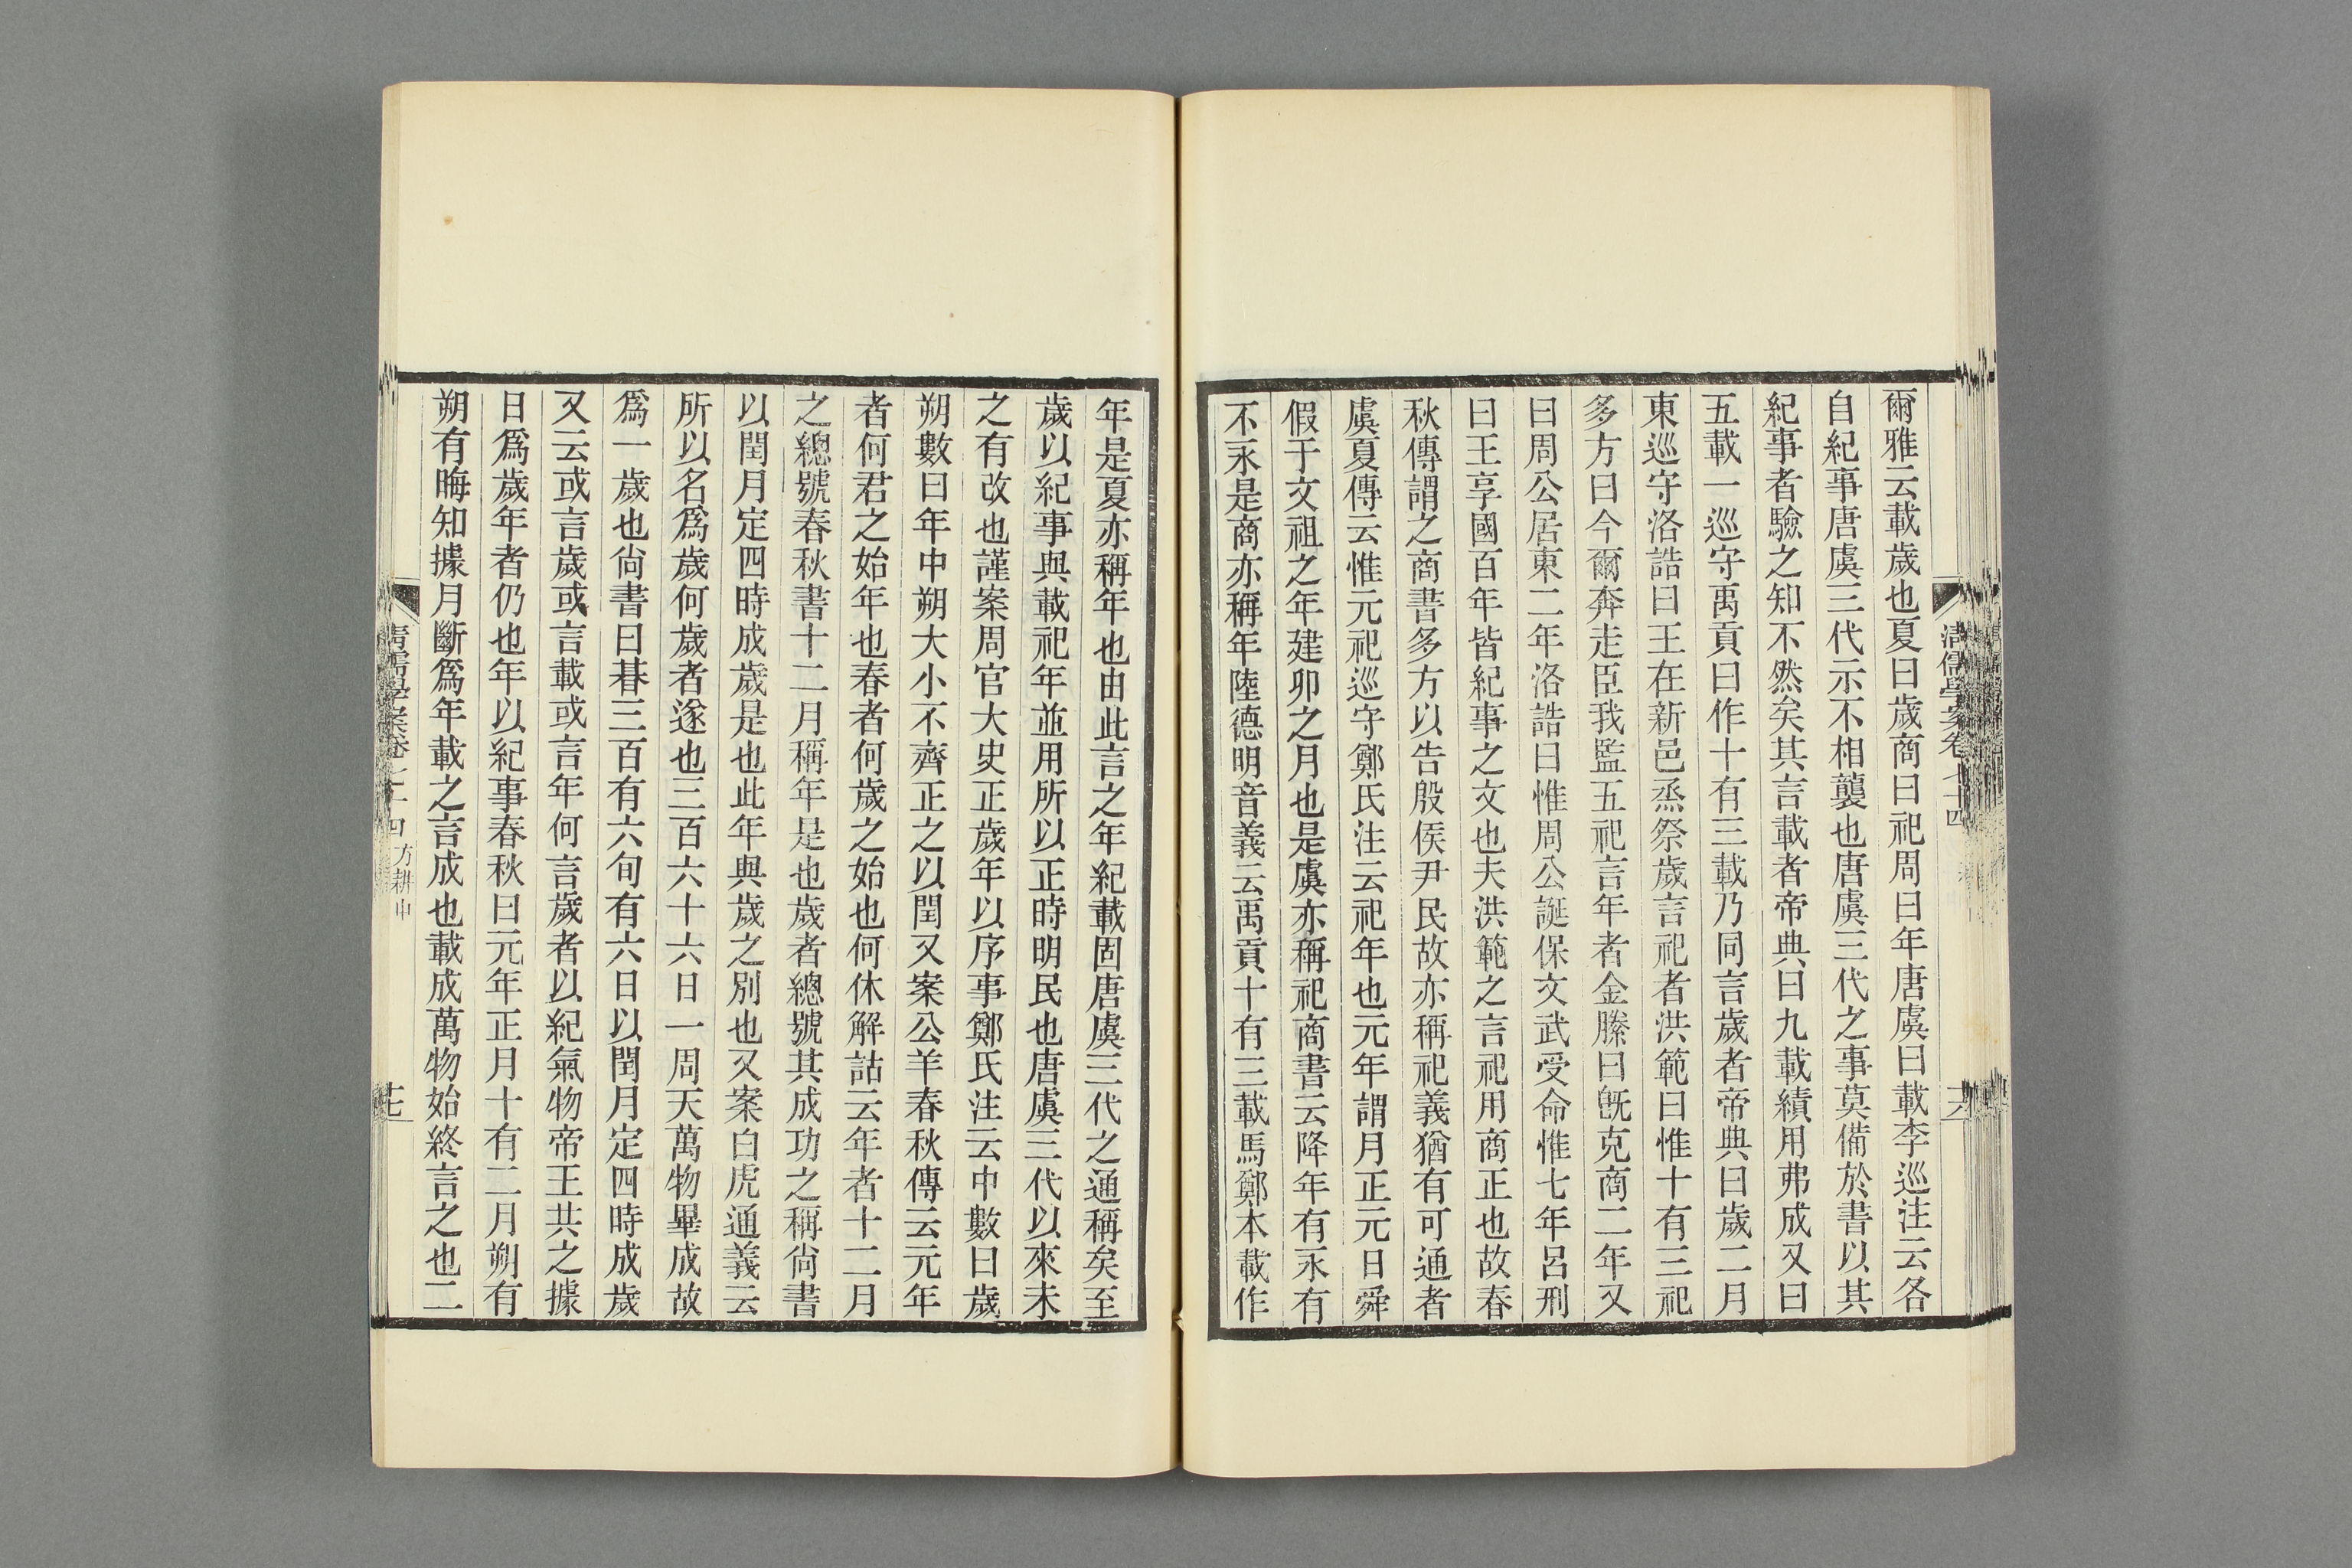 爾雅云載歲也夏曰歲商曰祀周曰年唐虞曰載李巡注云各
自紀事唐虞三代示不相襲也唐虞三代之事莫備於書以其
紀事者驗之知不然矣其言載者帝典曰九載績用弗成又曰
五載一巡守禹貢曰作十有三載乃同言歲者帝典曰歲二月
東巡守洛誥曰王在新邑烝祭歲言祀者洪範曰惟十有三祀
多方曰今爾奔走臣我監五祀言年者金縢曰旣克商二年又
曰周公居東二年洛誥曰惟周公誕保文武受命惟七年呂刑
曰王享國百年皆紀事之文也夫洪範之言祀用商正也故春
秋傳謂之商書多方以告殷侯尹民故亦稱祀義猶有可通者
虞夏傳云惟元祀巡守鄭氏注云祀年也元年謂月正元日舜
假于文祖之年建卯之月也是虞亦稱祀商書云降年有永有
不永是商亦稱年陸德明音義云禹貢十有三載馬鄭本載作
清儒學案卷七十四
六
年是夏亦稱年也由此言之年紀載固唐虞三代之通稱矣至
歲以紀事與載祀年並用所以正時明民也唐虞三代以來未
之有改也謹案周官大史正歲年以序事鄭氏注云中數曰歲
朔數曰年中朔大小不齊正之以閏又案公羊春秋傳云元年
者何君之始年也春者何歲之始也何休解詁云年者十二月
之總號春秋書十二月稱年是也歲者總號其成功之稱尙書
以閏月定四時成歲是也此年與歲之別也又案白虎通義云
所以名爲歲何歲者遂也三百六十六日一周天萬物畢成故
爲一歲也尙書曰朞三百有六旬有六日以閏月定四時成歲
又云或言歲或言載或言年何言歲者以紀氣物帝王共之據
日爲歲年者仍也年以紀事春秋曰元年正月十有二月朔有
朔有晦知據月斷爲年載之言成也載成萬物始終言之也二
清儒學案卷七十四 方耕中
七